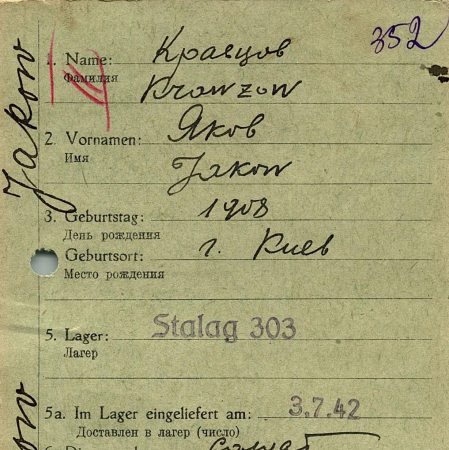 352
1. Name: Кравцов
Фамилия
Krawzow
2. Vornamen: Яков
Имя
Jakow
3. Geburtstag: 1908
День рождения
Geburtsort: г. Киев
Место рождения
5. Lager: Stalag 303
Лагерь
5a. Im Lager eingeliefert am: 3.7.42
Доставлен в лагерь (число)
Jakow